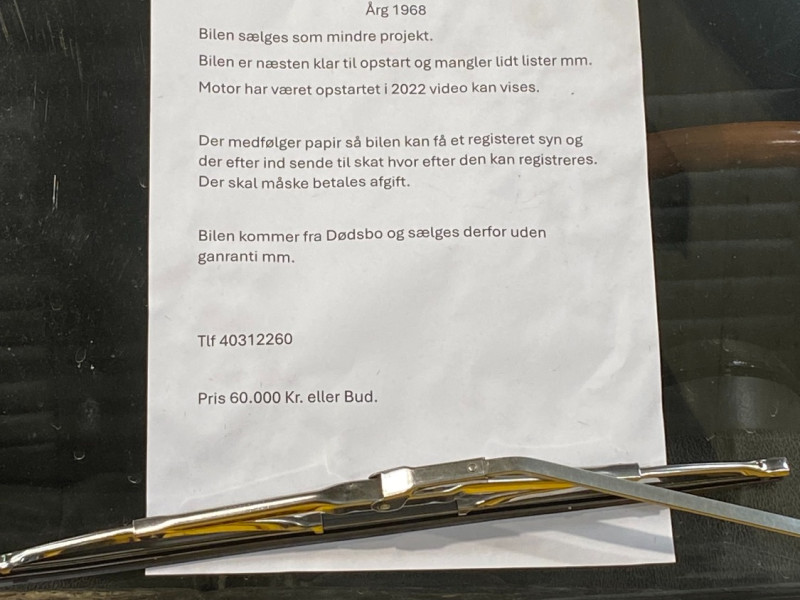 Årg 1968
Bilen sælges som mindre projekt.
Bilen er næsten klar til opstart og mangler lidt lister mm.
Motor har været opstartet i 2022 video kan vises.
Der medfølger papir så bilen kan få et registeret syn og
der efter ind sende til skat hvor efter den kan registreres.
Der skal måske betales afgift.
Bilen kommer fra Dødsbo og sælges derfor uden
ganranti mm.
Tlf 40312260
Pris 60.000 Kr. eller Bud.